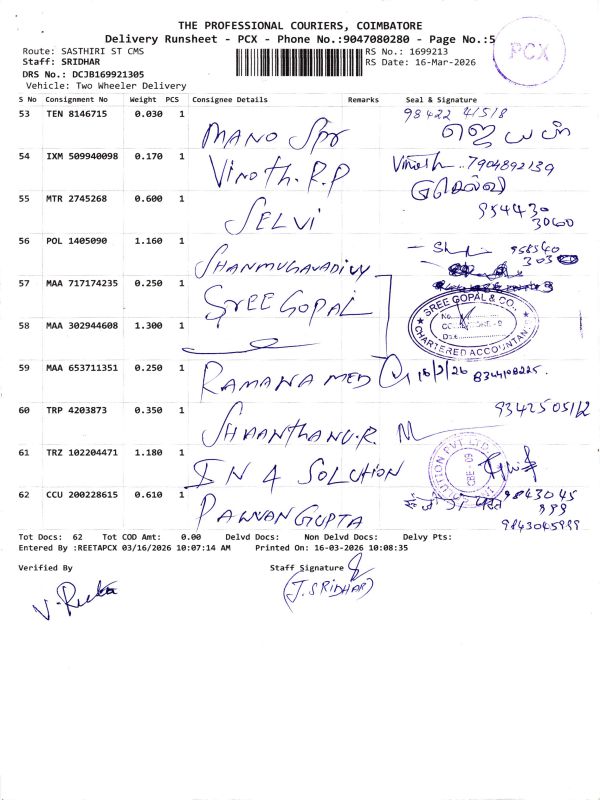 THE PROFESSIONAL COURIERS, COIMBATORE
Delivery Runsheet - PCX - Phone No.:9047080280 - Page No.:5
PCX
Route: SASTHIRI ST CMS RS No.: 1699213
Staff: SRIDHAR RS Date: 16-Mar-2026
DRS No.: DCJB169921305
Vehicle: Two Wheeler Delivery
S No Consignment No Weight PCS Consignee Details Remarks Seal & Signature
53 TEN 8146715 0.030 1 MANO Spr 98422 41518
54 IXM 509940098 0.170 1 Vinoth.R.P Vinoth..7904892139
55 MTR 2745268 0.600 1 SELVI 954430
3060
56 POL 1405090 1.160 1 SHANMUGAVADIVU 958540
57 MAA 717174235 0.250 1 SREE GOPAL
SREE GOPAL & CO.,
CHARTERED ACCOUNTANTS
58 MAA 302944608 1.300 1
59 MAA 653711351 0.250 1 RAMANA MED 16/3/26 8344108225.
60 TRP 4203873 0.350 1 SHAANTHANU.R. 9342505112
61 TRZ 102204471 1.180 1 IN 4 SOLUTION
62 CCU 200228615 0.610 1 PAWAN GUPTA 9843045
999
9843045999
Tot Docs: 62 Tot COD Amt: 0.00 Delvd Docs: Non Delvd Docs: Delvy Pts:
Entered By :REETAPCX 03/16/2026 10:07:14 AM Printed On: 16-03-2026 10:08:35
Verified By Staff Signature
V. Reeta (J. SRIDHAR)